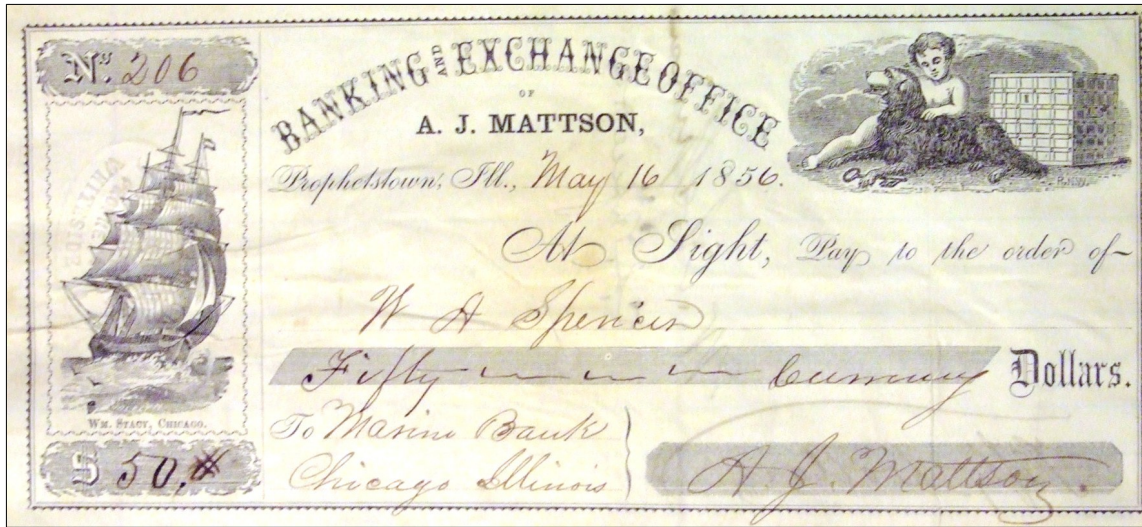 No. 206
BANKING AND EXCHANGE OFFICE
OF
A. J. MATTSON,
Prophetstown, Ill., May 16 1856.
At Sight, Pay to the order of
W H Spencer
Fifty Currency Dollars.
WM. STACY, CHICAGO.
To Marine Bank
Chicago Illinois
$ 50,
A. J. Mattson